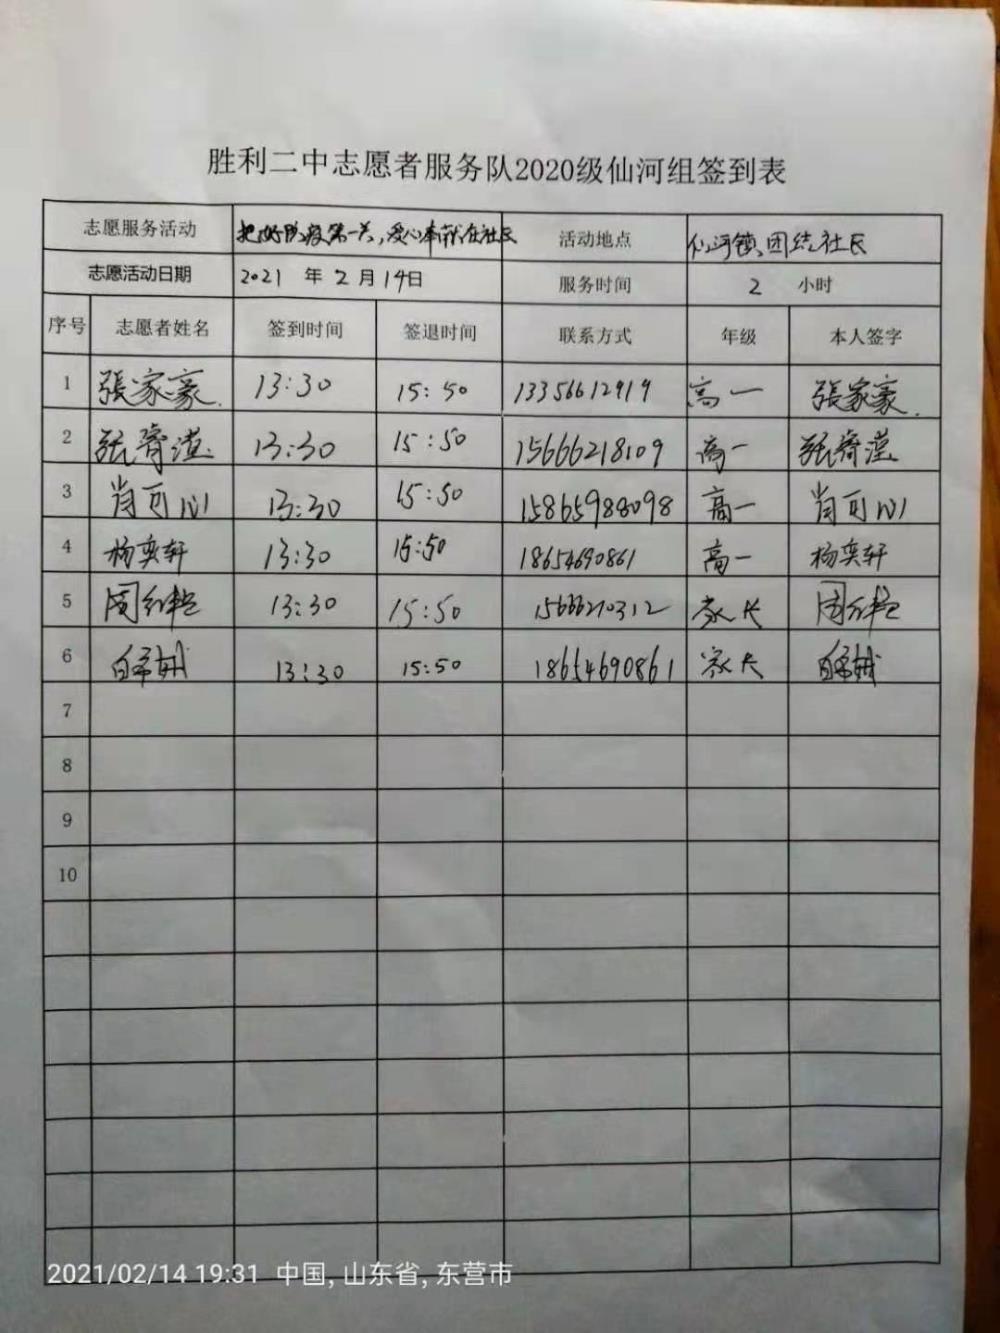 胜利二中志愿者服务队2020级仙河组签到表
志愿服务活动 把好防疫第一关,爱心奉献在社区 活动地点 仙河镇团结社区
志愿活动日期 2021 年 2 月 14日 服务时间 2 小时
序号 志愿者姓名 签到时间 签退时间 联系方式 年级 本人签字
1 張家豪 13:30 15:50 13356612919 高一 張家豪
2 13:30 15:50 15666218109 高一
3 肖可心 13:30 15:50 15865988098 高一 肖可心
4 杨奕轩 13:30 15:50 18654690861 高一 杨奕轩
5 13:30 15:50 15666210312 家长
6 13:30 15:50 18654690861 家长
7
8
9
10
2021/02/14 19:31 中国, 山东省, 东营市